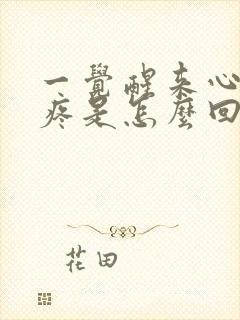 一覺醒来心
疼是怎麼回
花田